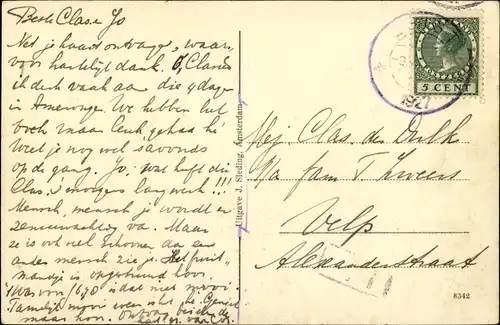 Beste Clas en Jo
Net je kaart ontvangen, waar
voor hartelijk dank. O, Clas
ik denk vaak aan die 4 dagen
in Amerongen. We hebben het
toch maar leuk gehad hè
Weet je nog wel s'avonds
op de gang. Jo, wat heeft die
Clas, 's morgens lang werk!!!
Mensch, mensch je wordt er
zenuwachtig van. Maar
ze is ook veel schooner dan een
ander mensch zie je. Het fruit
mandje is opgebrand hoor.
Was voor 1670 is dat niet mooi
Tamelijk mooi weer
maar hoor. Ontvang beiden de
van Co.
Uitgave J. Sleding, Amsterdam
5 CENT
1927
Mej. Clas. de Dulk
p/a fam
Velp
Alexanderstraat
8342